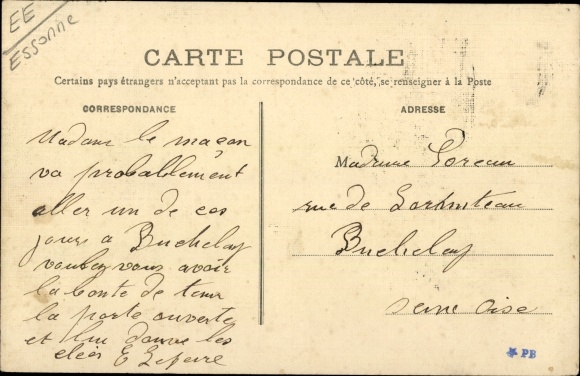 EE
Essonne
CARTE POSTALE
Certains pays étrangers n'acceptant pas la correspondance de ce côté, se renseigner à la Poste
CORRESPONDANCE
Madame le maçon
va probablement
aller un de ces
jours a Buchelay
voulez vous avoir
la bonté de tenir
la porte ouverte
et lui donner les
clées E Lefevre
ADRESSE
Madame Loreau
rue de
Buchelay
Seine Oise
PB